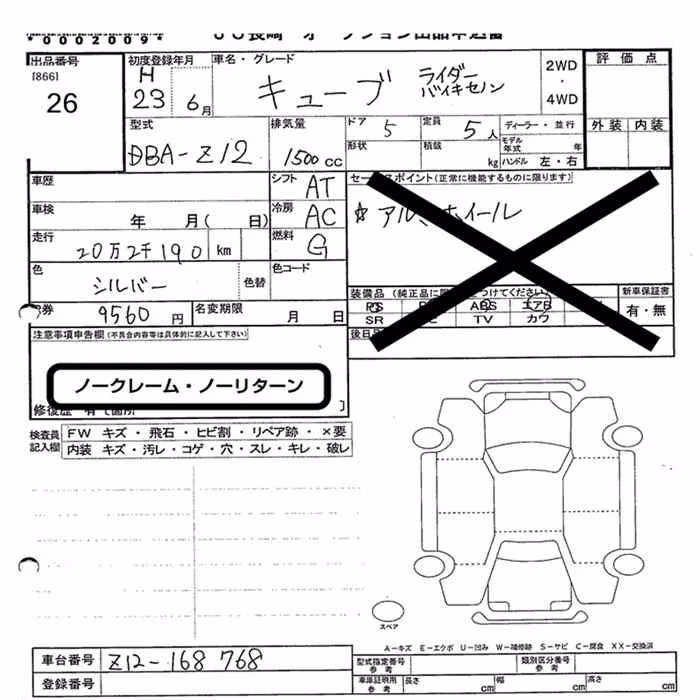 *0002009*
JU長崎 オークション出品申込書
出品番号
[866]
26
初度登録年月
H
23 6月
車名・グレード
キューブ ライダー
バイキセノン
2WD
・
4WD
評価点
外装 内装
型式
DBA-Z12
排気量
1500cc
ドア 5
定員 5人
ディーラー・並行
形状
積載 kg
モデル年式 年
ハンドル 左・右
車歴
シフト AT
セールスポイント(正常に機能するものに限ります)
☆アルミホイール
車検 年 月( 日)
冷房 AC
走行 20万2千190 km
燃料 G
色 シルバー
色替
色コード
券 9560円
名変期限 月 日
装備品 (純正品に つけてください)
PS ABS エアB
SR TV カワ
新車保証書
有・無
注意事項申告欄(不具合内容等は具体的に記入して下さい)
後日
ノークレーム・ノーリターン
修復歴 有 て箇所 ]
検査員記入欄
FW キズ・飛石・ヒビ割・リペア跡・×要
内装 キズ・汚レ・コゲ・穴・スレ・キレ・破レ
スペア
A-キズ E-エクボ U-凹み W-補修跡 S-サビ C-腐食 XX-交換済
車台番号 Z12-168768
登録番号
型式指定番号 参考
類別区分番号 参考
車庫証明用 参考 長さ cm 幅 cm 高さ cm